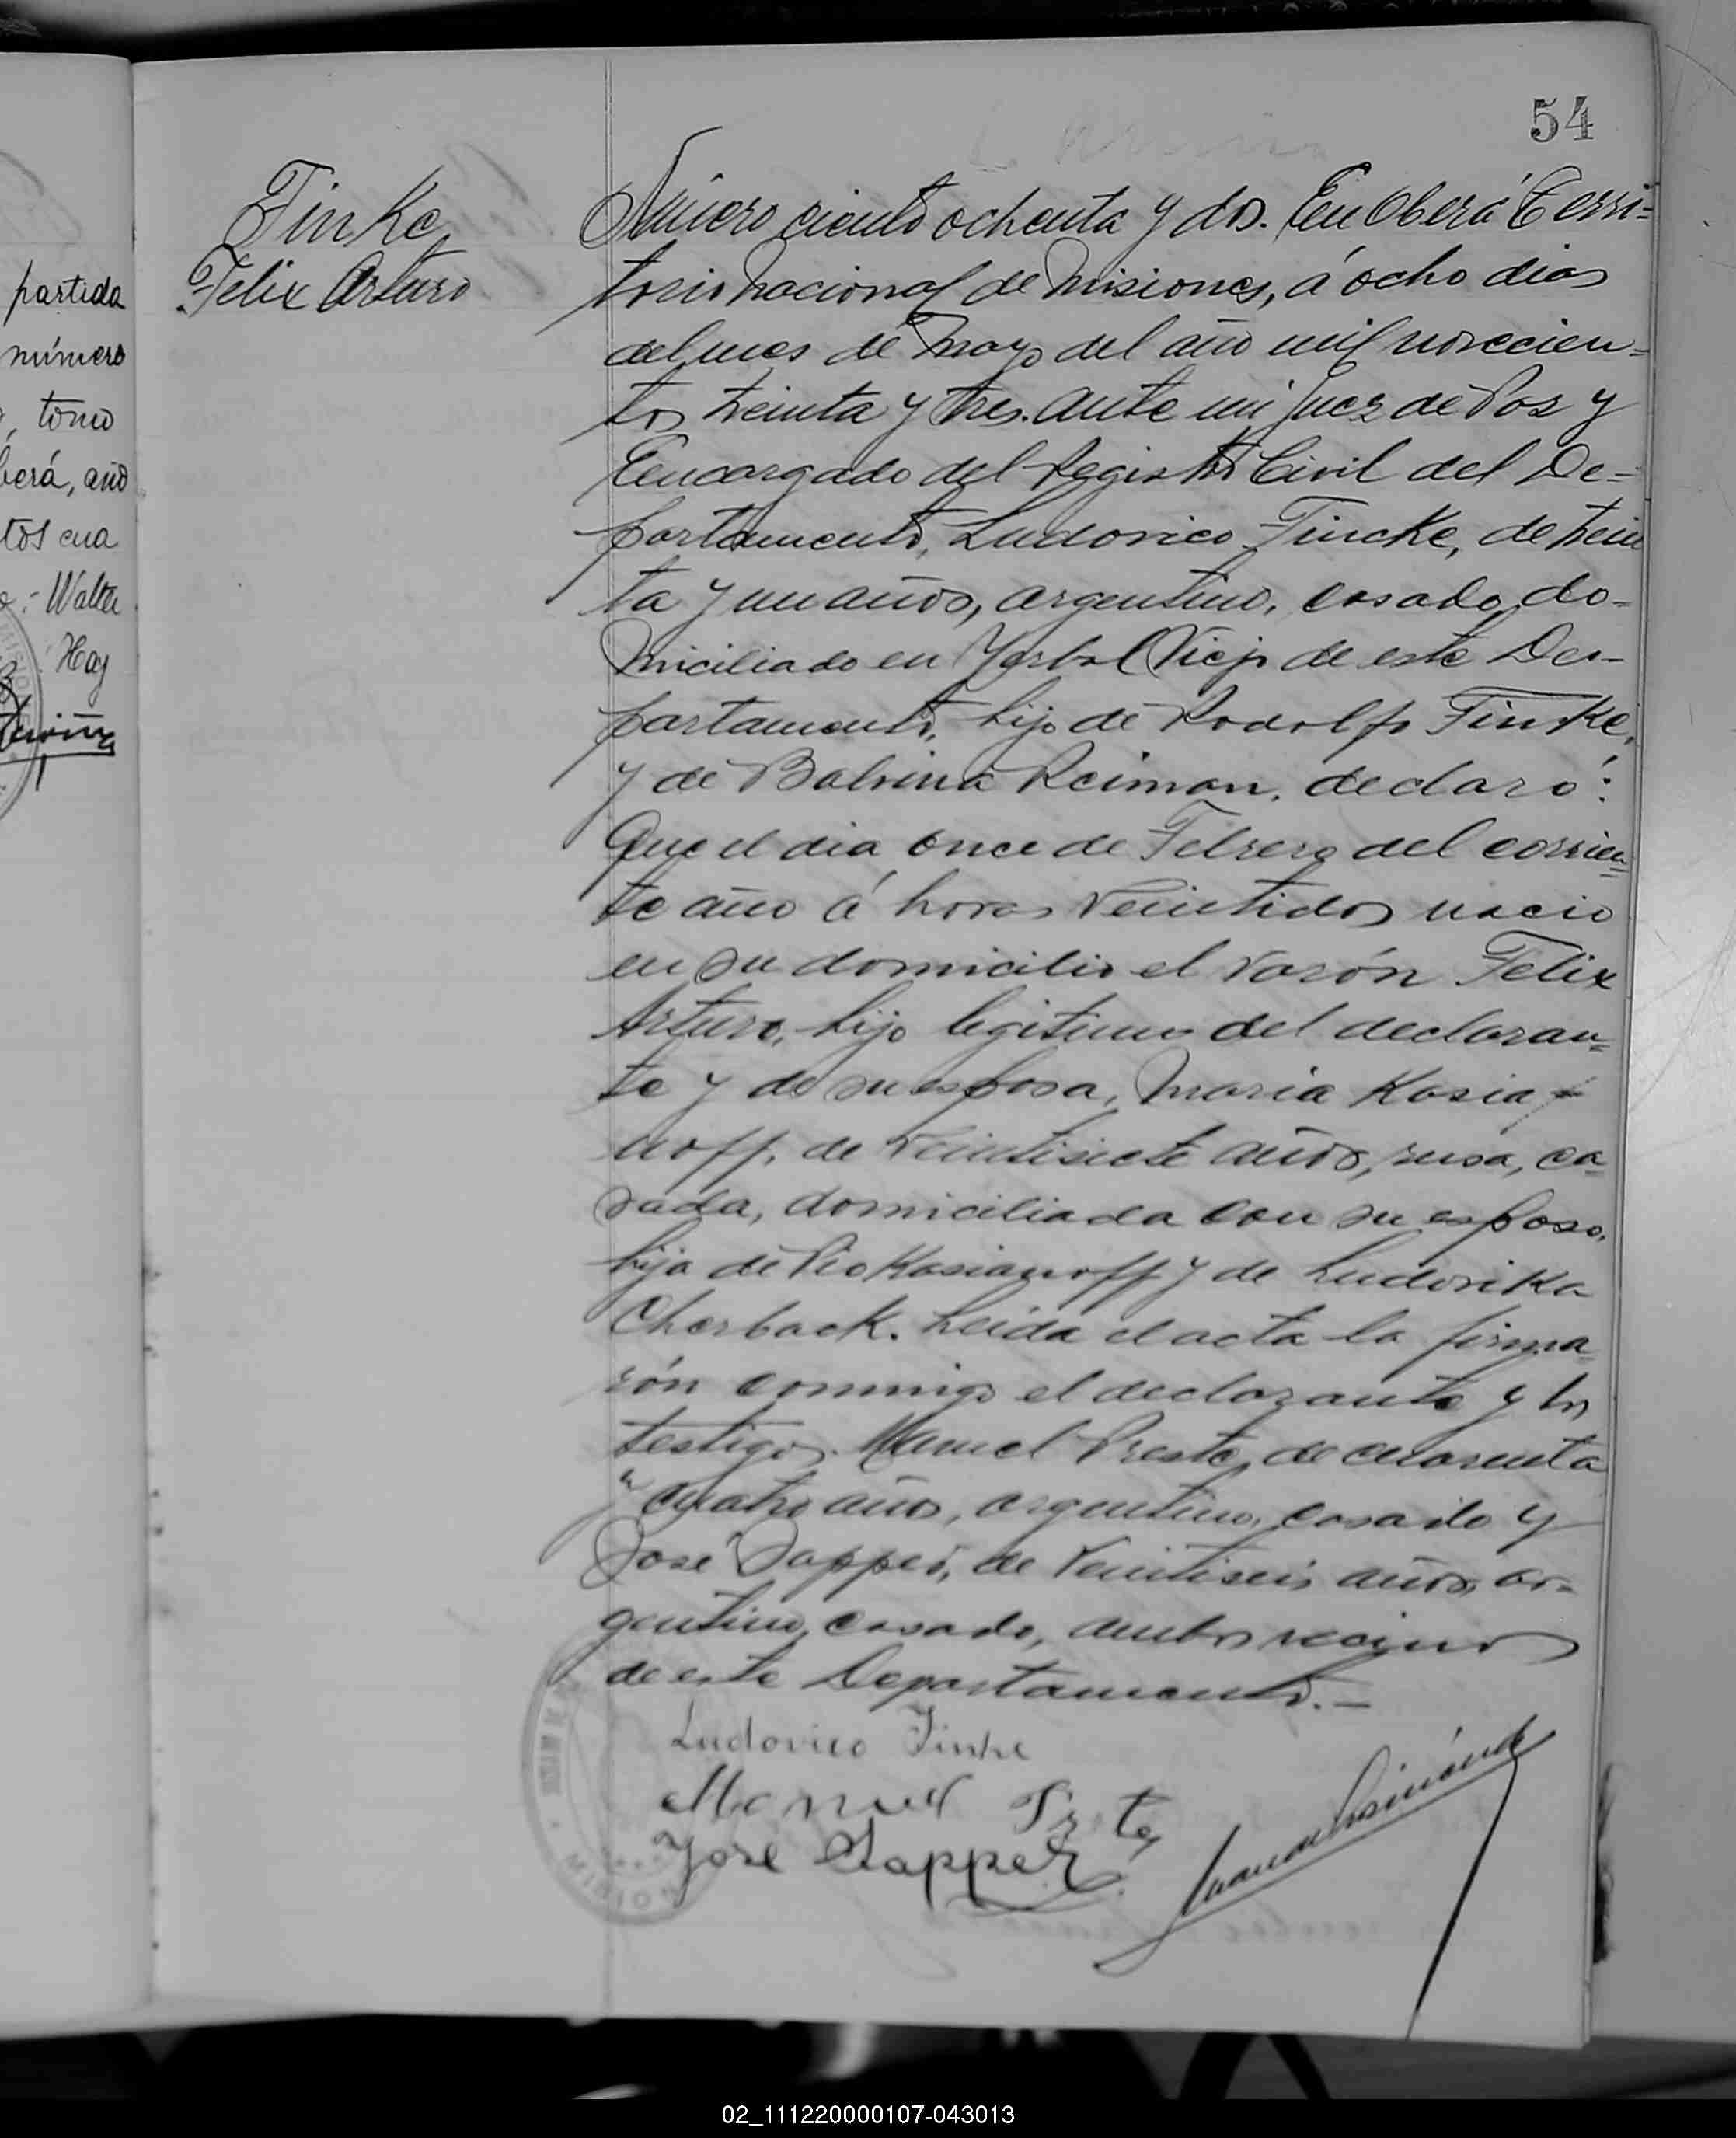 54
Finke
Felix Arturo
partida
número
tomo
berá, año
tos cua
Walter
Hay
Número ciento ochenta y dos. En Oberá Terri=
torio nacional de Misiones, á ocho dias
del mes de Mayo del año mil novecien=
tos treinta y tres. ante mi Juez de Paz y
Encargado del Registro Civil del De=
partamento, Ludovico Fincke, de trein
ta y un años, argentino, casado, do-
miciliado en Yerbal Viejo de este De-
partamento, hijo de Rodolfo Finke,
y de Balvina Reiman, declaró:
Que el dia once de Febrero del corrien=
te año á horas veintidos nació
en su domicilio el varón Felix
Arturo, hijo legitimo del declaran=
te y de su esposa, Maria Kasia
noff, de veintisiete años, rusa, ca=
sada, domiciliada con su esposo,
hija de Pio Kasianoff y de Ludovika
Cherback. Leida el acta la firma=
rón conmigo el declarante y los
testigos Manuel Preste, de cuarenta
y cuatro años, argentino, casado y
José Sapper, de veintiseis años, ar=
gentino, casado, ambos vecinos
de este Departamento.-
Ludovico Finke
Manuel
José Sapper
02_111220000107-043013